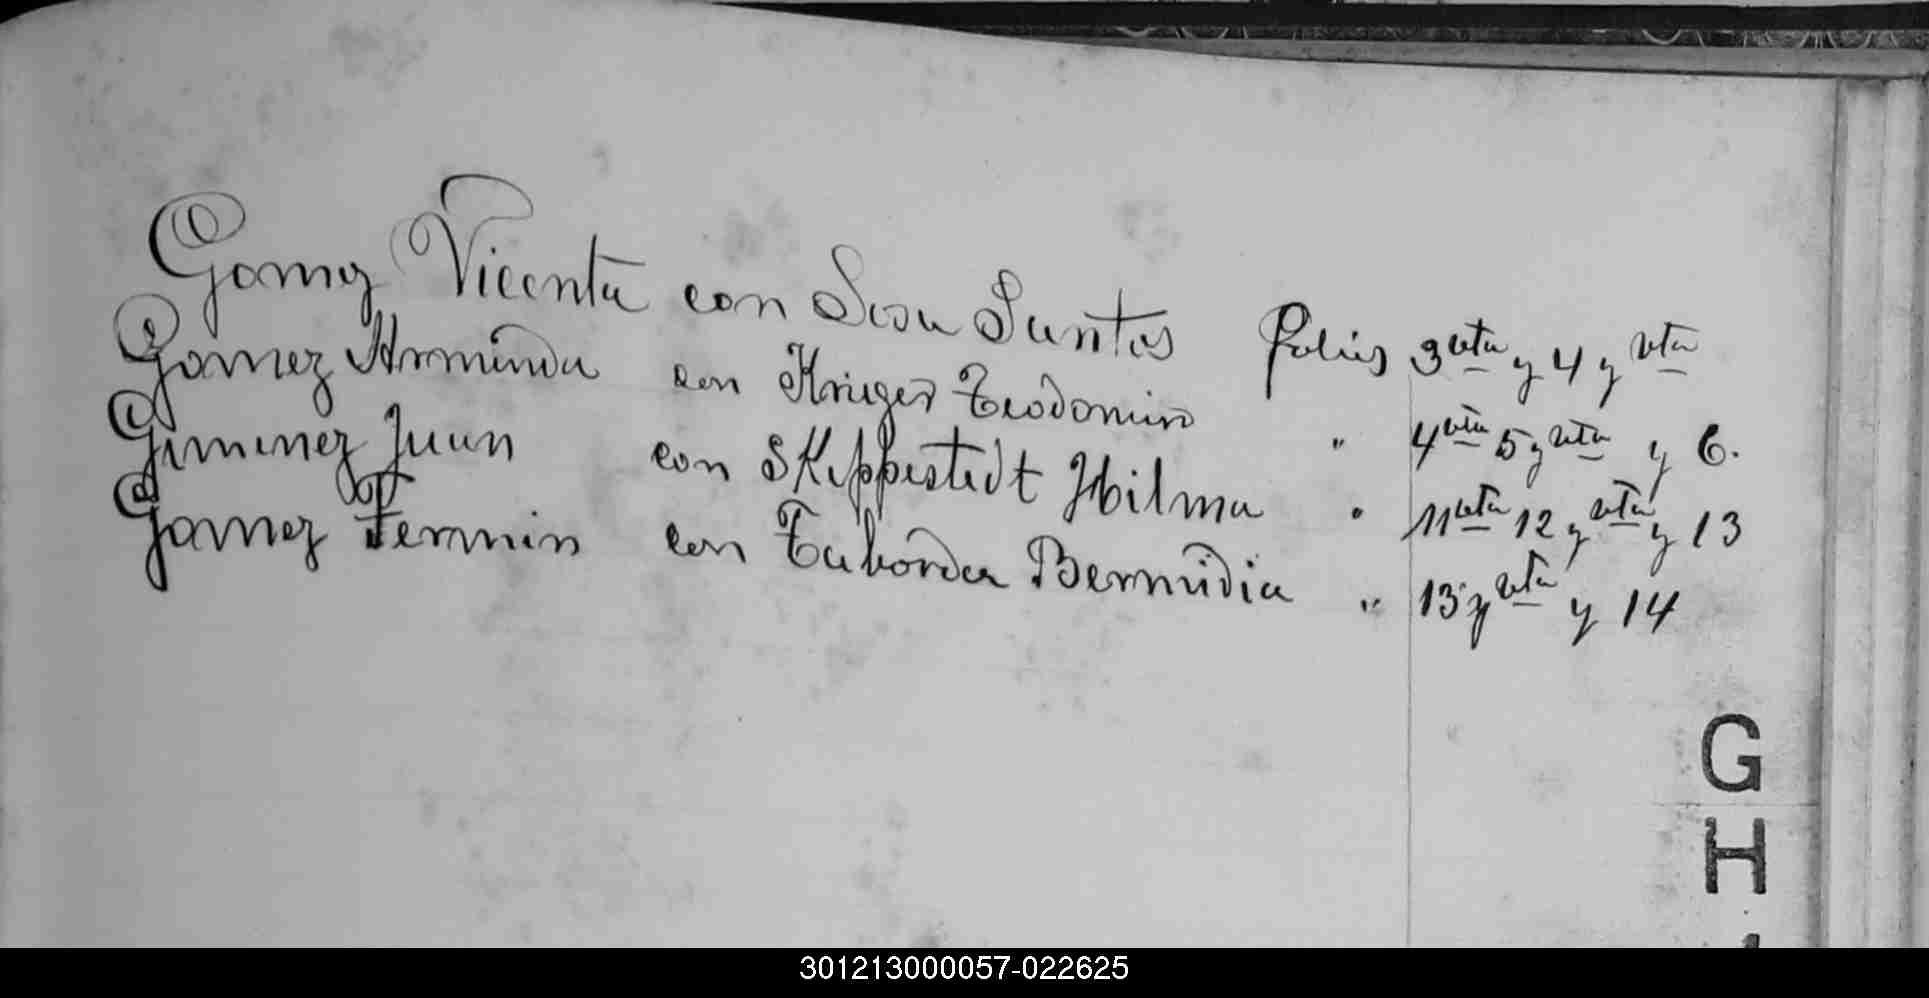 Gomez Vicenta con Sosa Santos Folios 3 vta y 4 y vta
Gomez Arminda con Krieger Teodomiro " 4 vta 5 y vta y 6.
Gimenez Juan con SKippestedt Hilma " 11 vta 12 y vta y 13
Gomez Fermin con Taborda Bermidia " 13 y vta y 14
G
H
301213000057-022625